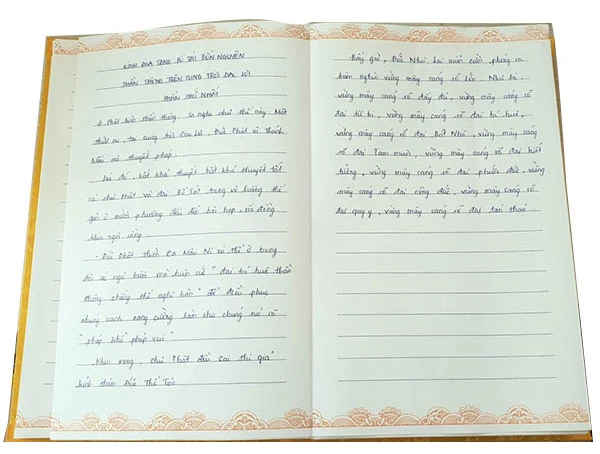 KINH ĐỊA TẠNG BỒ TÁT BỔN NGUYỆN
THẦN THÔNG TRÊN CUNG TRỜI ĐAO LỢI
PHẨM THỨ NHẤT
Phật hiện thần thông. Ta nghe như thế này. Một
thuở nọ, tại cung trời Đao Lợi, Đức Phật vì Thánh
Mẫu mà thuyết pháp.
Lúc đó, bất khả thuyết bất khả thuyết tất
cả chư Phật và đại Bồ Tát trong vô lượng thế
giới ở mười phương đều đến hội họp, rồi đồng
khen ngợi rằng.
Đức Phật Thích Ca Mâu Ni có thể ở trong
đời ác ngũ trược mà hiện sức "đại trí huệ thần
thông chẳng thể nghĩ bàn" để điều phục
chúng sanh cang cường làm cho chúng nó rõ
"pháp khổ pháp vui"
Khen xong, chư Phật đều sai thị giả
kính thăm Đức Thế Tôn.
Bấy giờ, Đức Như Lai mỉm cười, phóng ra
trăm nghìn vừng mây sáng rỡ lớn. Như là:
vừng mây sáng rỡ đầy đủ, vừng mây sáng rỡ
đại từ bi, vừng mây sáng rỡ đại trí huệ,
vừng mây sáng rỡ đại Bát Nhã, vừng mây sáng
rỡ đại Tam muội, vừng mây sáng rỡ đại kiết
tường, vừng mây sáng rỡ đại phước đức, vừng
mây sáng rỡ đại công đức, vừng mây sáng rỡ
đại quy y, vừng mây sáng rỡ đại tán thán...